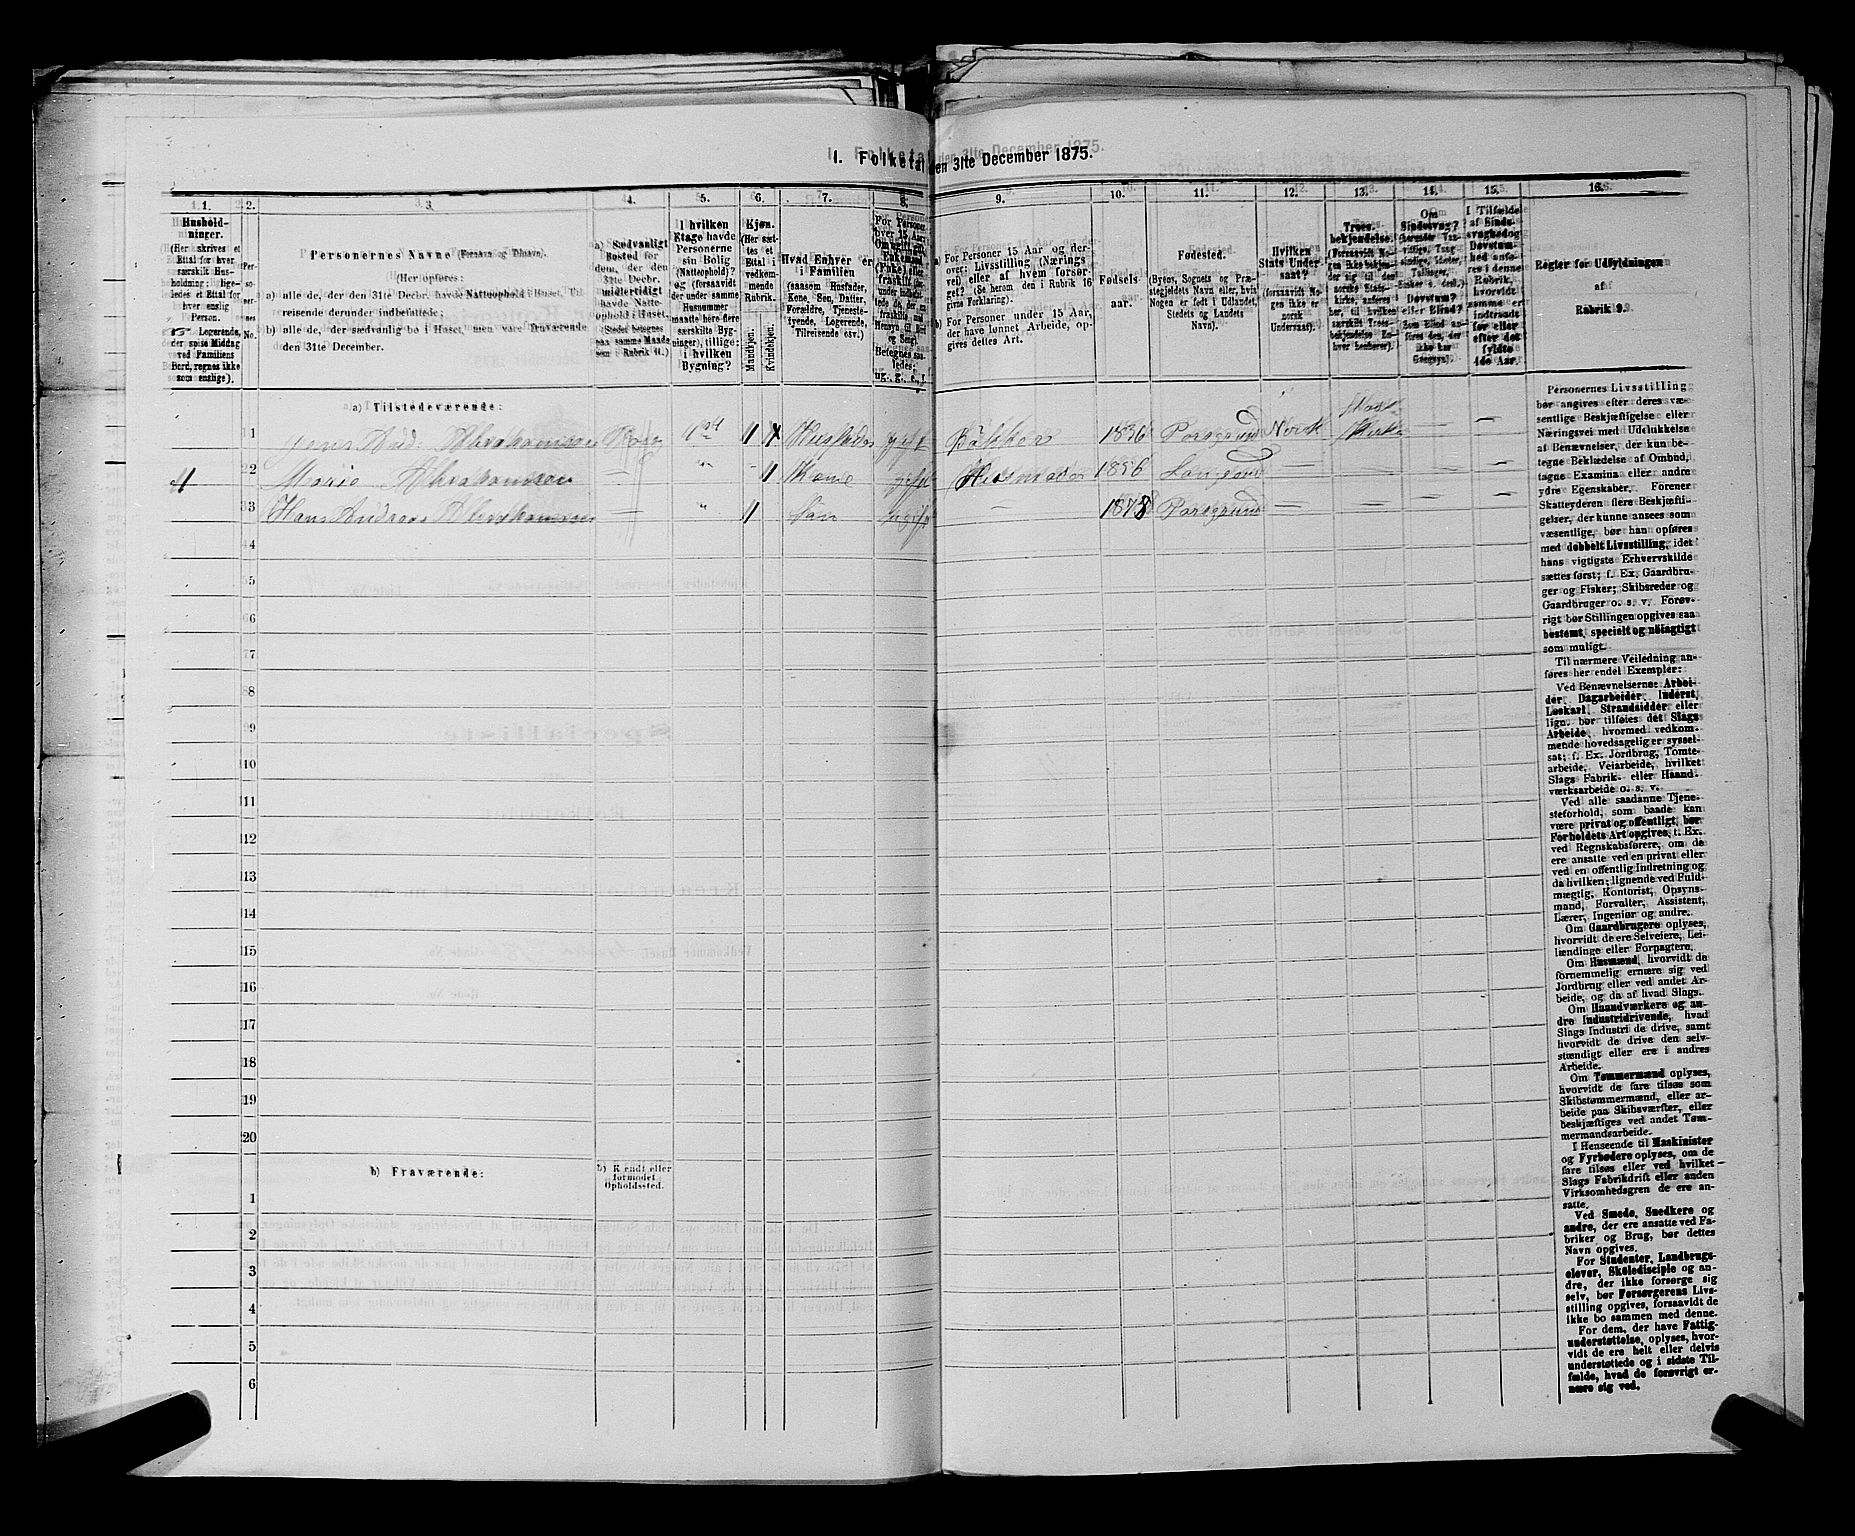 I. Folketal den 31te December 1875.
1. 2. 3. 4. 5. 6. 7. 8. 9. 10. 11. 12. 13. 14. 15. 16.
Hushold-
ninger.
(Her skrives et
Ettal for hver
særskilt Hus-
holdning; lige-
ledes et Ettal for
hver enslig
Person.
Logerende,
der spise Middag
ved Familiens
Bord, regnes ikke
som enslige).
No.
Personernes Navne (Fornavn og Tilnavn).
(Her opføres:
a) alle de, der den 31te Decbr. havde Natteophold i Huset, Til-
reisende derunder indbefattede;
b) alle de, der sædvanlig bo i Huset, men vare fraværende
den 31te December.
a) Sædvanligt
Bosted for
dem, der den
31te Decbr.
midlertidigt
havde Natte-
ophold i Huset.
(Stedet betegnes
paa samme Maade
som i Rubrik 11.)
I hvilken
Etage havde
Personerne
sin Bolig
(Natteophold)?
og (forsaavidt
der under samme
Husnummer
maatte høre flere
særskilte Byg-
ninger), tillige:
i hvilken
Bygning?
Kjøn.
(Her sæt-
tes et
Ettal i
vedkom-
mende
Rubrik.
Mandkjøn.
Kvindekjøn.
Hvad Enhver er
i Familien
(saasom Husfader,
Kone, Søn, Datter,
Forældre, Tjeneste-
tyende, Logerende,
Tilreisende osv.)
For Personer
over 15 Aar:
Om ugift, gift,
Enkemand
(Enke) eller
fraskilt
Betegnes saa-
ledes:
ug., g., e., f.
a) For Personer 15 Aar og der-
over: Livsstilling (Nærings
vei), eller af hvem forsør-
get? (Se herom den i Rubrik 16
givne Forklaring).
b) For Personer under 15 Aar,
der have lønnet Arbeide, op-
gives dettes Art.
Fødsels-
aar.
Fødested.
(Byens, Sognets og Præ-
stegjeldets Navn eller, hvis
Nogen er født i Udlandet,
Stedets og Landets
Navn).
Hvilken
Stats Under-
saat?
(forsaavidt No-
gen ikke er
norsk
Undersaat).
Troes-
bekjendelse.
(Forsaavidt No-
gen ikke bekjen-
der sig til den
norske Stats-
kirke, anføres
her, til hvilken
særskilt Troes-
bekjendelse En-
hver henhører).
Om
Sindssvag?
Døvstum?
eller Blind?
I Tilfælde
af Sinds-
svaghed og
Døvstum-
hed anfø-
res i denne
Rubrik,
hvorvidt
samme er
indtraadt
før eller
efter det
fyldte
4de Aar.
Regler for Udfyldningen
af
Rubrik 9.
a) Tilstedeværende:
1 Abrahamsen 1ste 1 Husfader gift Bøkker 1836 Porsgrund Norsk
2 Marie Abrahamsen „ 1 Kone gift 1856 Langesund
3 Hans Andreas Abrahamsen „ 1 Søn ugift 1878 Porsgrund
4
5
6
7
8
9
10
11
12
13
14
15
16
17
18
19
20
b) Fraværende:
b) Kjendt eller
formodet
Opholdssted.
1
2
3
4
5
6
Personernes Livsstilling
bør angives efter deres væ-
sentlige Beskjæftigelse eller
Næringsvei med Udelukkelse
af Benævnelser, der kun be-
tegne Beklædelse af Ombud,
tagne Examina eller andre
ydre Egenskaber. Forener
Skatteyderen flere Beskjæfti-
gelser, der kunne ansees som
væsentlige, bør han opføres
med dobbelt Livsstilling, idet
hans vigtigste Erhvervskilde
sættes først; f. Ex. Gaardbru-
ger og Fisker; Skibsreder og
Gaardbruger o. s. v. Forøv-
rigt bør Stillingen opgives saa
bestemt, specielt og nøiagtigt
som muligt.
Til nærmere Veiledning an-
føres her endel Exempler:
Ved Benævnelserne: Arbei-
der, Dagarbeider, Inderst,
Løskarl, Strandsidder eller
lign. bør tilføies det Slags
Arbeide, hvormed vedkom-
mende hovedsagelig er syssel-
sat; f. Ex. Jordbrug, Tomte-
arbeide, Veiarbeide, hvilket
Slags Fabrik- eller Haand-
værksarbeide o. s. v.
Ved alle saadanne Tjene-
steforhold, som baade kan
være privat og offentligt, bør
Forholdets Art opgives, t. Ex.
ved Regnskabsførere, om de
ere ansatte ved en privat eller
ved en offentlig Indretning og
da hvilken; lignende ved Fuld-
mægtig, Kontorist, Opsyns-
mand, Forvalter, Assistent,
Lærer, Ingeniør og andre.
Om Gaardbrugere oplyses,
hvorvidt de ere Selveiere, Lei-
lændinge eller Forpagtere.
Om Husmænd, hvorvidt de
fornemmelig ernære sig ved
Jordbrug eller ved andet Ar-
beide, og da af hvad Slags.
Om Haandværkere og an-
dre Industridrivende, hvad
Slags Industri de drive, samt
hvorvidt de drive den selv-
stændigt eller ere i andres
Arbeide.
Om Tømmermænd oplyses,
hvorvidt de fare tilsøs som
Skibstømmermænd, eller ar-
beide paa Skibsværfter, eller
beskjæftiges ved andet Tøm-
mermandsarbeide.
I Henseende til Maskinister
og Fyrbødere oplyses, om de
fare tilsøs eller ved hvilket
Slags Fabrikdrift eller anden
Virksomhedsgren de ere an-
satte.
Ved Smede, Snedkere og
andre, der ere ansatte ved Fa-
briker og Brug, bør dettes
Navn opgives.
For Studenter, Landbrugs-
elever, Skoledisciple og an-
dre, der ikke forsørge sig
selv, bør Forsørgerens Livs-
stilling opgives, forsaavidt de
ikke bo sammen med denne.
For dem, der have Fattig-
understøttelse, oplyses, hvor-
vidt de ere helt eller delvis
understøttede og i sidste Til-
fælde, hvad de forøvrigt er-
nære sig ved.